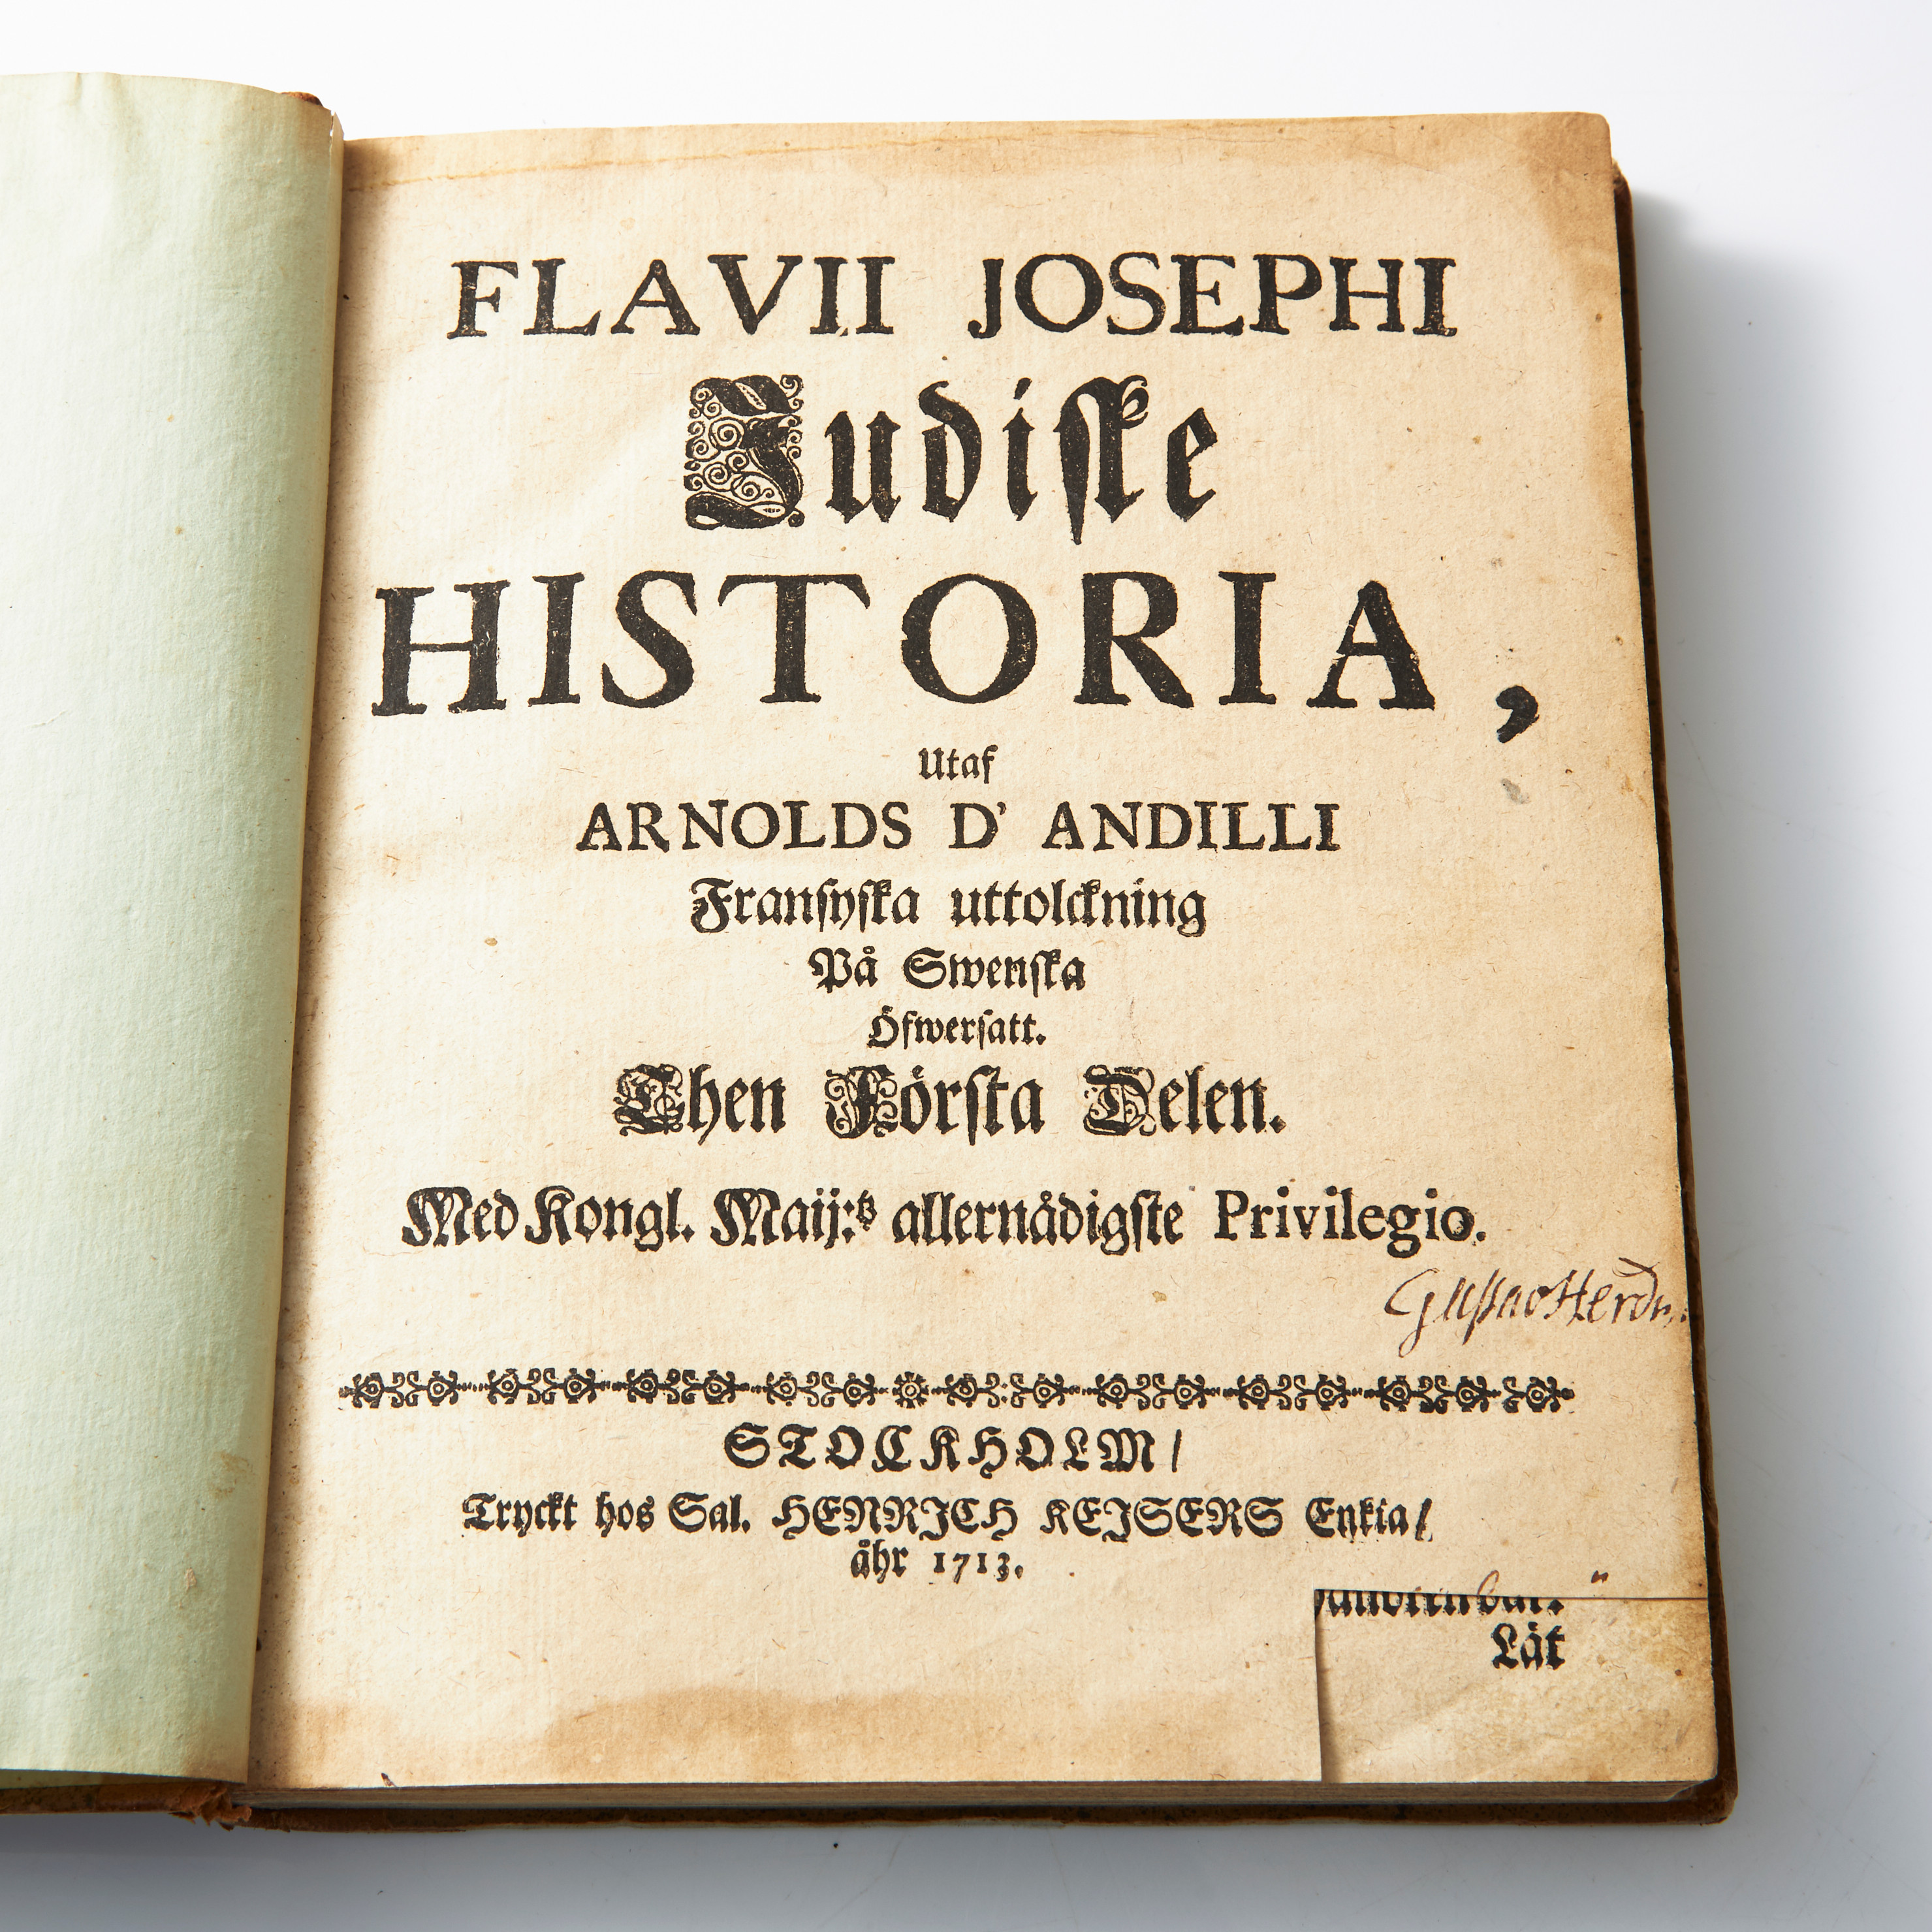 FLAVII JOSEPHI
Judiske
HISTORIA,
Utaf
ARNOLDS D' ANDILLI
Fransyska uttolckning
På Swenska
Öfwersatt.
Then Första Delen.
Med Kongl. Maij:tz allernådigste Privilegio.
STOCKHOLM/
Tryckt hos Sal. HENRICH KEISERS Enkia/
åhr 1713.
Låt